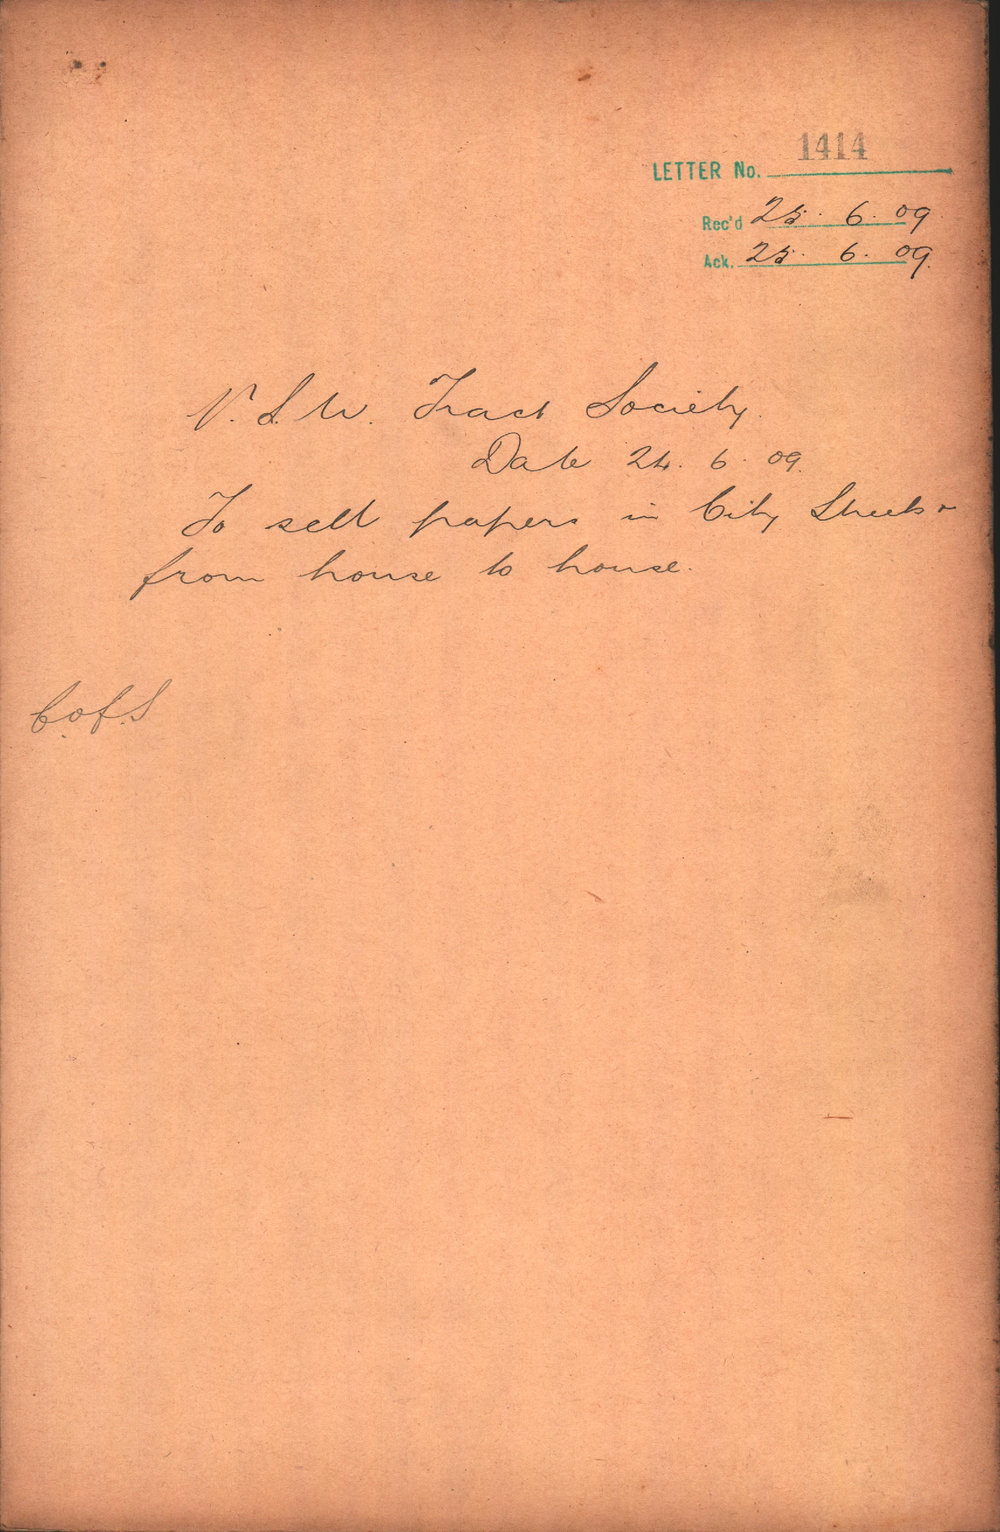 LETTER No. 1414
Rec'd 25. 6. 09.
Ack. 25. 6. 09.
N. S. W. Tract Society.
Date 24. 6. 09.
To sell papers in City Streets &
from house to house.
C. of. S